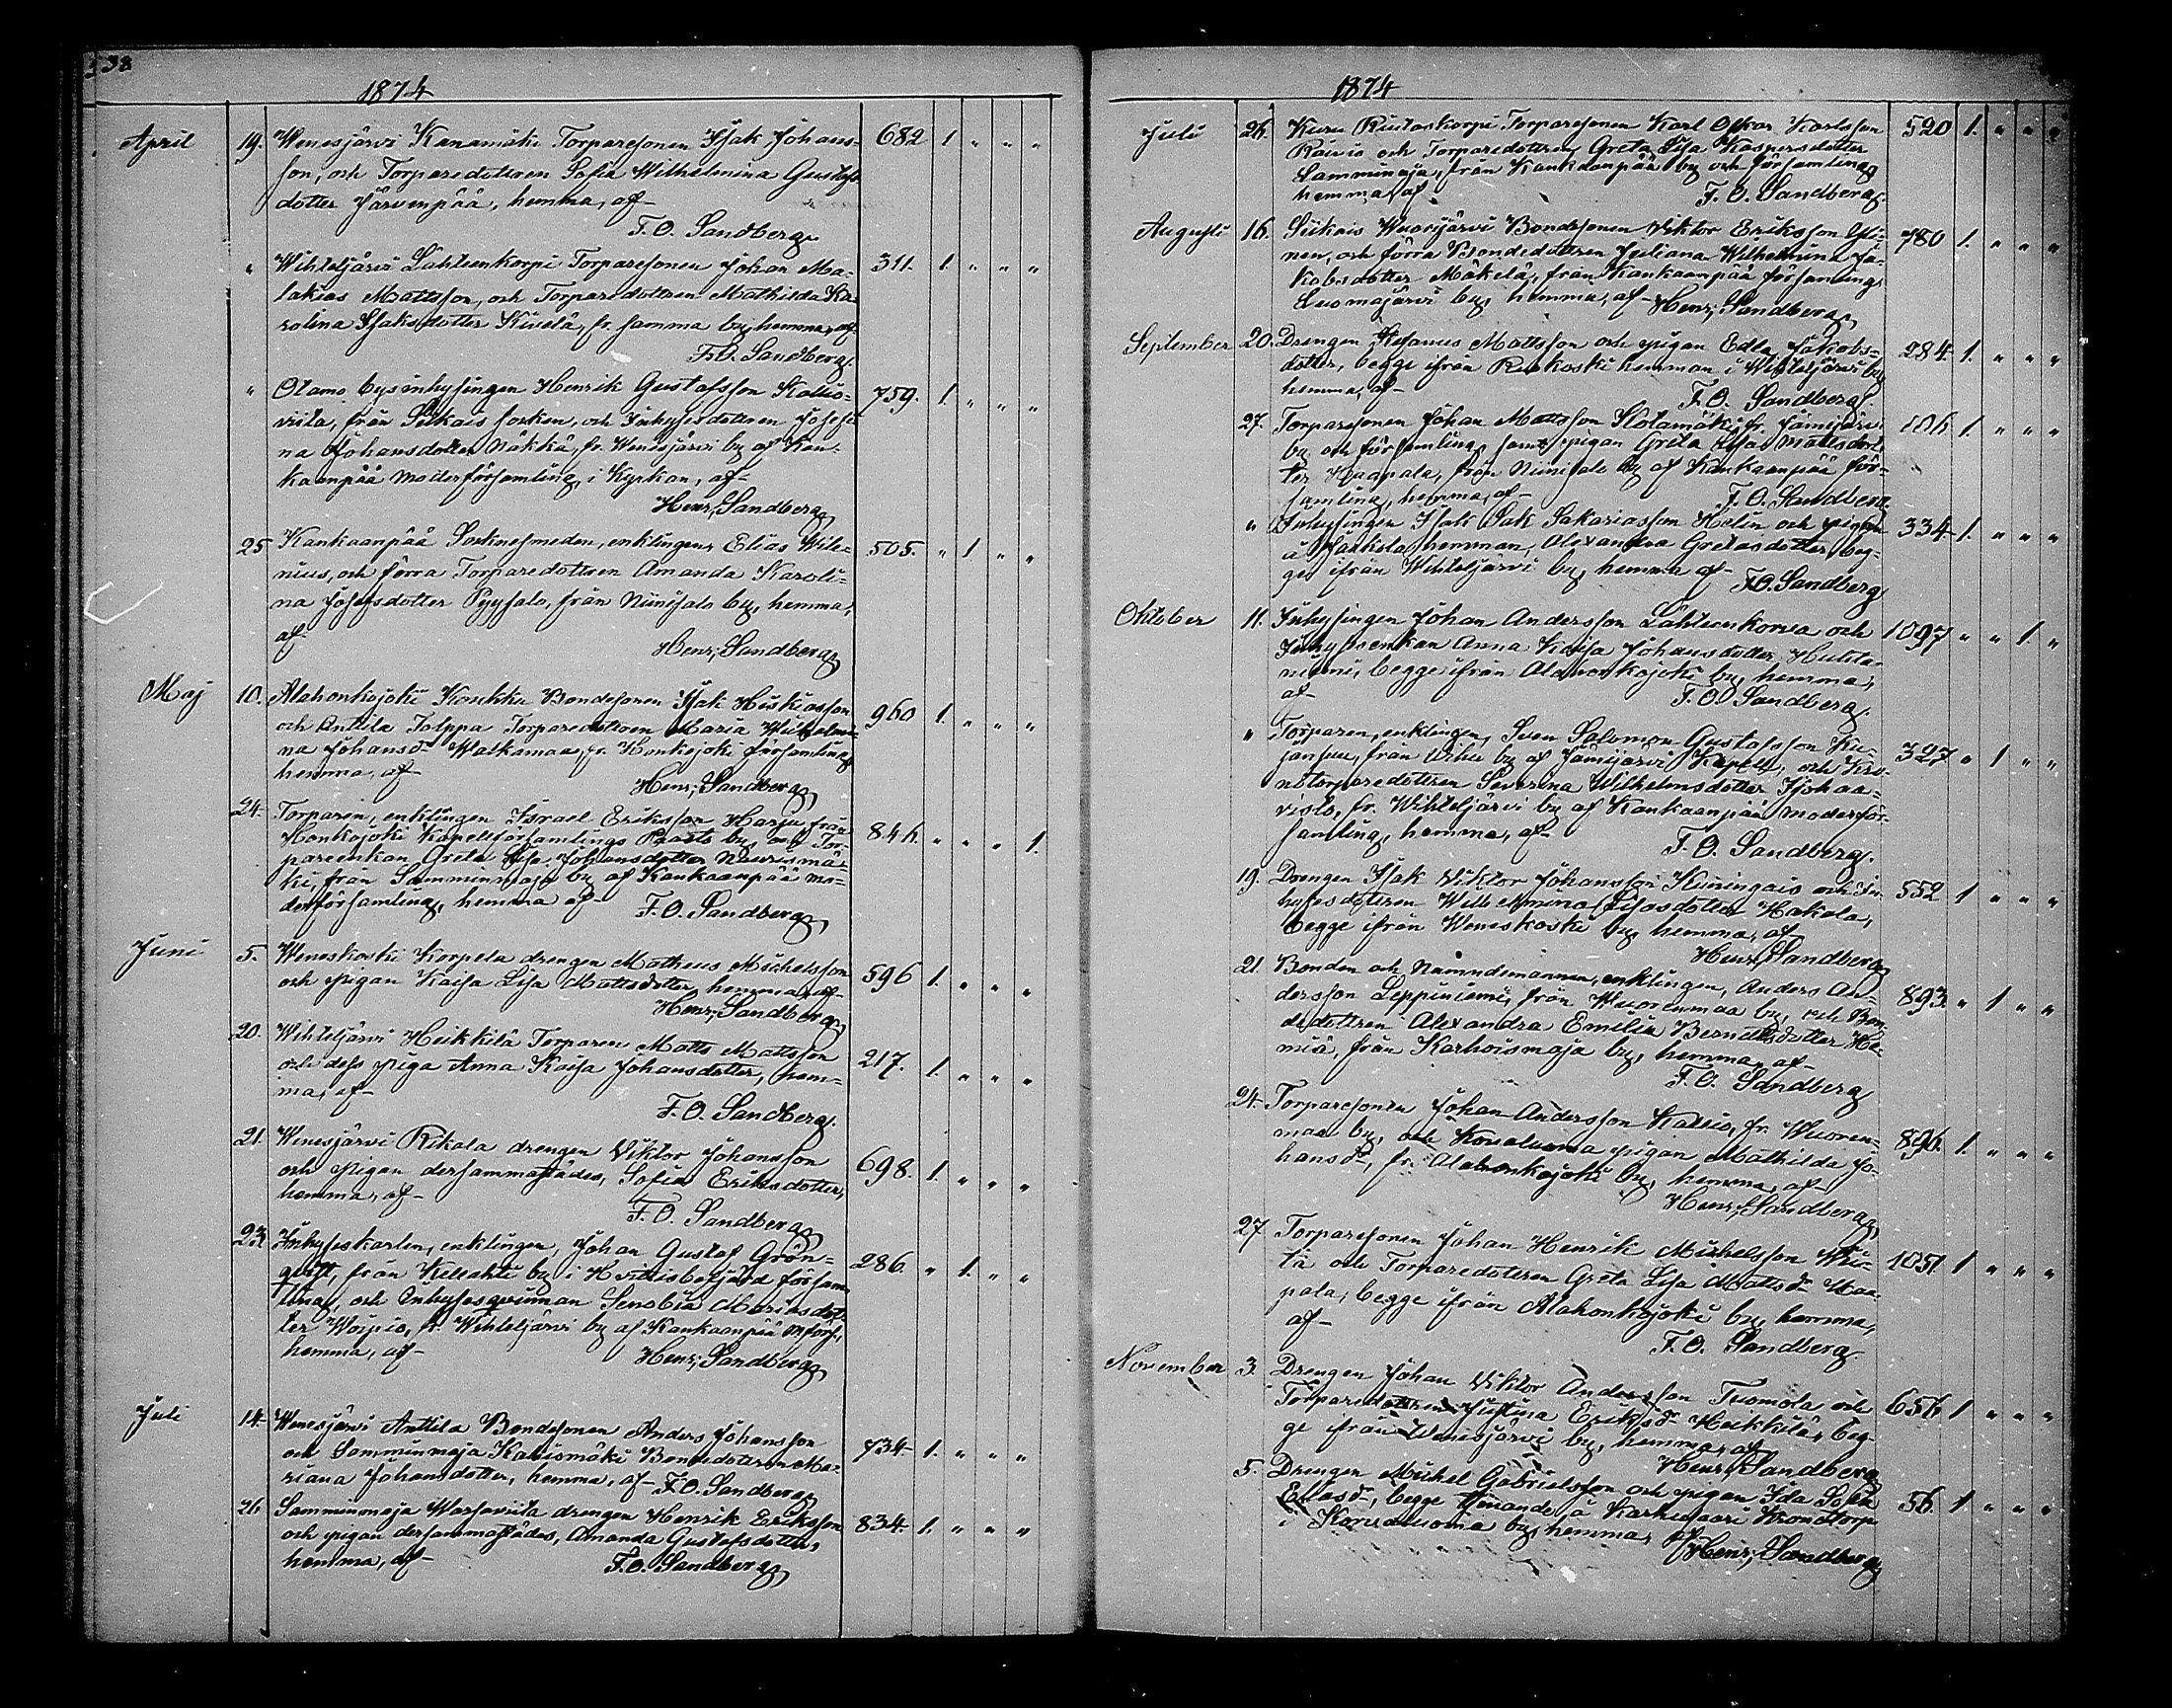 538
1874
April 19. Wenesjärvi Kanamäki Torparesonen Isak Johans= 682 1. " " "
son, och Torparedottren Sofia Wilhelmina Gustafs
dotter Järvenpää, hemma, af
F. O. Sandberg.
" Wihteljärvi Lähteenkorpi Torparesonen Johan Ma= 311. 1. " " "
lakias Mattsson, och Torparedottren Mathilda Ka=
rolina Isaksdotter Kivelä, fr. samma by, hemma, af
F. O. Sandberg.
" Otamo bysinhysingen Henrik Gustafsson Kallio= 759. 1. " " "
viita, från Siikais socken, och Inhysesdottren Josefi=
na Johansdotter Näkkä, fr. Wenesjärvi by af Kan=
kaanpää moderförsamling, i Kyrkan, af
Henr. Sandberg
25 Kankaanpää Socknesmeden, enklingen, Elias Wile= 505. " 1. " "
nius, och förra Torparedottren Amanda Karoli=
na Josefsdotter Pyysalo, från Niinisalo by, hemma,
af
Henr. Sandberg
Maj 10. Alahonkajoki Kouhku Bondesonen Isak Hiskiasson 960 1. " " "
och Anttila Tolppa Torparedottren Maria Wilhelmi=
na Johansdr Walkamaa, fr. Honkajoki församling,
hemma, af
Henr. Sandberg
24. Torparen, enklingen Israel Eriksson Harju från 846. " " " 1.
Honkajoki Kapellförsamlings Paasto by, och Tor=
pareenkan Greta Lisa Johansdotter Naurismä=
ki, från Samminmaja by af Kankaanpää mo=
derförsamling, hemma af
F. O. Sandberg
Juni 5. Weneskoski Korpela drengen Matheus Michelsson 596 1. " " "
och pigan Kaisa Lisa Mattsdotter, hemma, af
Henr. Sandberg
20. Wihteljärvi Heikkilä Torparen Matts Mattsson 217. 1. " " "
och dess piga Anna Kaisa Johansdotter, hem=
ma, af
F. O. Sandberg.
21. Wenesjärvi Rikala drengen Viktor Johansson 698. 1. " " "
och pigan dersammastädes, Sofia Eriksdotter,
hemma, af
F. O. Sandberg
23. Inhyseskarlen, enklingen, Johan Gustaf Grön= 286. " 1. " "
qvist, från Kellahti by i Hvittisbofjärd försam=
ling, och Inhysesqvinnan Senobia Mariasdot=
ter Woipio, fr. Wihteljärvi by af Kankaanpää m. förs.,
hemma, af
Henr. Sandberg
Juli 14. Wenesjärvi Anttila Bondesonen Anders Johansson 734. 1. " " "
och Samminmaja Katismäki Bondedottren Ma=
riana Johansdotter, hemma, af F. O. Sandberg
26. Samminmaja Warsaviita drengen Henrik Eriksson 834. 1. " " "
och pigan dersammastädes, Amanda Gustafsdotter,
hemma, af
F. O. Sandberg
1874
Juli 26. Kuru Riutaskorpi Torparesonen Karl Oskar Karlsson 520 1. " " "
Roivio och Torparedottren Greta Lisa Kaspersdotter
Samminaja, från Kankaanpää by och församling
hemma, af
F. O. Sandberg.
Augusti 16. Siikais Wuorijärvi Bondesonen Viktor Eriksson 780 1. " " "
nen, och förra Bondedottren Juliana Wilhelmina Ja=
kobsdotter Mäkelä, från Kankaanpää församlings
Luomajärvi by, hemma, af Henr. Sandberg
September 20. Drengen Stefanus Mattsson och pigan Edla Jakobs= 284. 1. " " "
dotter, begge ifrån Ruokoski hemman i Wihteljärvi by
hemma, af
F. O. Sandberg.
27. Torparesonen Johan Mattsson Kotamäki, fr. Jämijärvi 1. " " "
by och församling samt pigan Greta Lisa Mattsdot=
ter Haapala, från Niinisalo by af Kankaanpää för=
samling, hemma, af
F. O. Sandberg
" Inhysingen Isak Sakariasson Helin och pigan 334 1. " " "
å Jaakkola hemman, Alexandra Gretasdotter, beg=
ge ifrån Wihteljärvi by, hemma af F. O. Sandberg
Oktober 11. Inhysingen Johan Andersson Lähteenkorva och 1097 " " 1 "
Inhysesenkan Anna Kaisa Johansdotter Huhta=
niemi, begge ifrån Alahonkajoki by, hemma,
af
F. O. Sandberg.
" Torparen, enklingen, Sven Salomon Gustafsson Ku= 327 " 1 " "
janpää, från Vihu by af Jämijärvi Kapell, och Kro=
notorparedottren Severina Wilhelmsdotter Ijohaa=
visto, fr. Wihteljärvi by af Kankaanpää moderför=
samling, hemma, af
F. O. Sandberg.
19. Drengen Isak Viktor Johansson Kuningais och In= 552 1 " " "
hysesdottren Wilhelmina Lisasdotter Hakala,
begge ifrån Weneskoski by, hemma, af
Henr. Sandberg
21. Bonden och Nämndemannen, enklingen, Anders An= 893. " 1 " "
dersson Leppiniemi, från Wuorenmaa by, och Bon=
dedottren Alexandra Emilia Berndtsdotter He=
niä, från Karhoismaja by, hemma, af
F. O. Sandberg
24. Torparesonen Johan Andersson Kallio, fr. Wuoren= 896. 1. " " "
maa by, och Kovaluoma pigan Mathilda Jo=
hansdr, fr. Alahonkajoki by, hemma, af
Henr. Sandberg
27 Torparesonen Johan Henrik Michelsson Wii= 1051 1 " " "
ta och Torparedottren Greta Lisa Mattsdr Haa=
pala, begge ifrån Alahonkajoki by, hemma,
af
F. O. Sandberg.
November 3. Drengen Johan Viktor Andersson Tuomola och 656 1 " " "
Torparedottren Justina Eriksdr Heikkilä, beg=
ge ifrån Wenesjärvi by, hemma, af
Henr. Sandberg
5. Drengen Michel Gabrielsson och pigan Ida Sofia 56. 1 " " "
Eliasdr, begge tjenande å Karhusaari Kronotorp
i Kovaluoma by, hemma, af
Henr. Sandberg